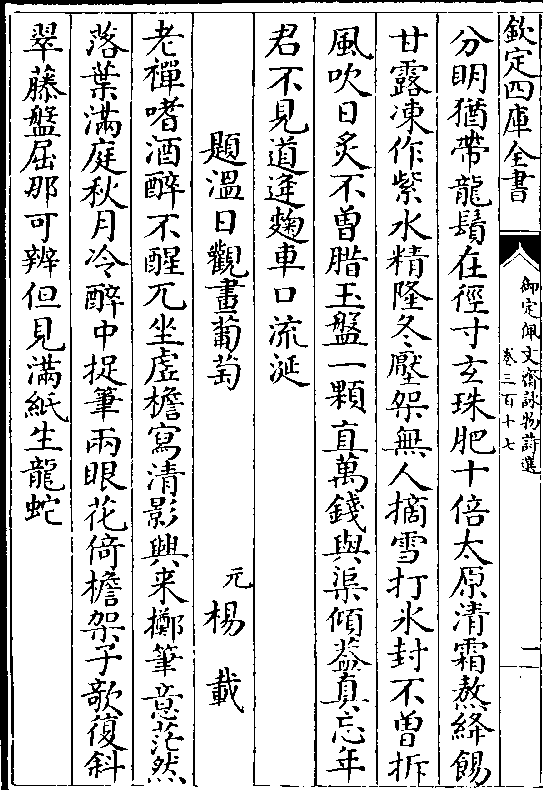 欽定四庫全書
御定佩文齋詠物詩選
卷三百十七
一
分明猶帶龍鬚在徑寸玄珠肥十倍太原清霜熬絳餳
甘露凍作紫水精隆冬壓架無人摘雪打氷封不曽拆
風吹日炙不曽腊玉盤一顆直萬錢與渠傾葢真忘年
君不見道逄麴車口流涎
題溫日觀畫葡萄
元楊載
老禪嗜酒醉不醒兀坐虛檐寫清影興来擲筆意茫然
落葉滿庭秋月冷醉中捉筆兩眼花倚檐架子欹復斜
翠藤盤屈那可辨但見滿紙生龍蛇